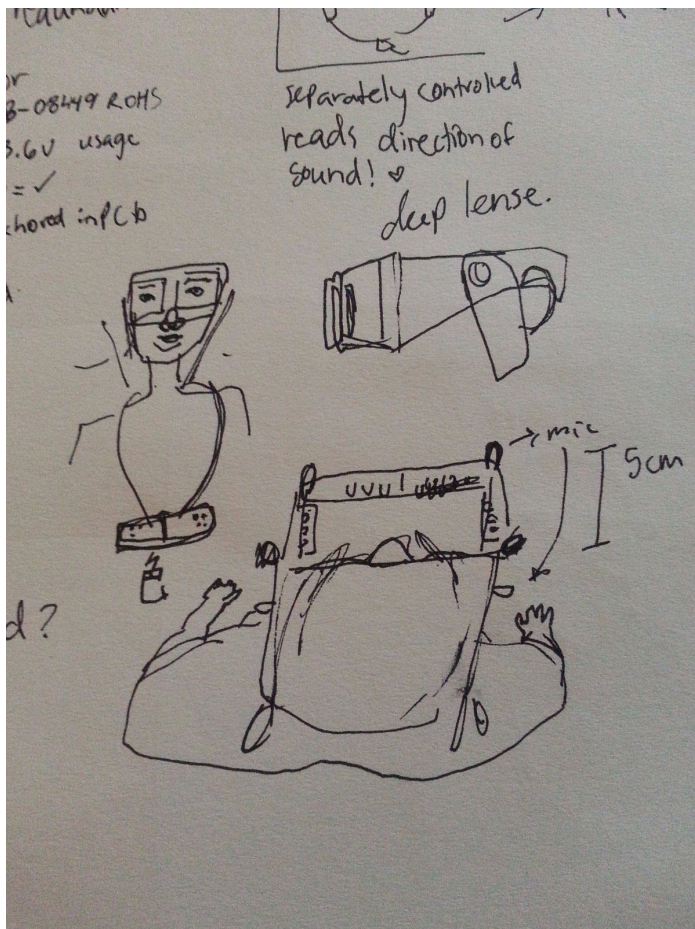 B-08449 ROHS
3.6V usage
= ✓
chored in PCb
separately controlled
reads direction of
sound! ♥
deep lense.
mic
5cm
d?